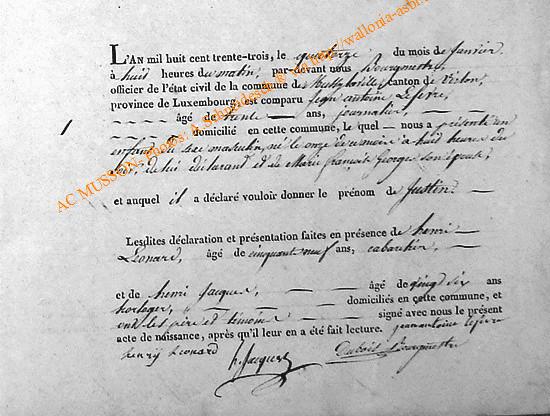 L'AN mil huit cent trente-trois, le quatorze du mois de Janvier
à huit heures du matin, par-devant nous Bourgmestre,
officier de l'état civil de la commune de Mussy la ville canton de Virton,
province de Luxembourg, est comparu Jean antoine Lefevre,
âgé de trente ans, journalier,
domicilié en cette commune, le quel nous a présenté un
enfant du sexe masculin, né le onze de ce mois à huit heures du
soir, de lui déclarant et de Marie françoise Georges son épouse,
et auquel il a déclaré vouloir donner le prénom de Justin.
Lesdites déclaration et présentation faites en présence de henri
Leonard, âgé de cinquante neuf ans, cabaretier,
et de henri Jacques, âgé de vingt six ans
horloger, domiciliés en cette commune, et
ont les père et témoins signé avec nous le présent
acte de naissance, après qu'il leur en a été fait lecture. jean antoine lefevre
henry Leonard h. Jacques Dubois Bourgmestre
AC MUSSON Photos: A. Schmadesack http://wallonia-asbl